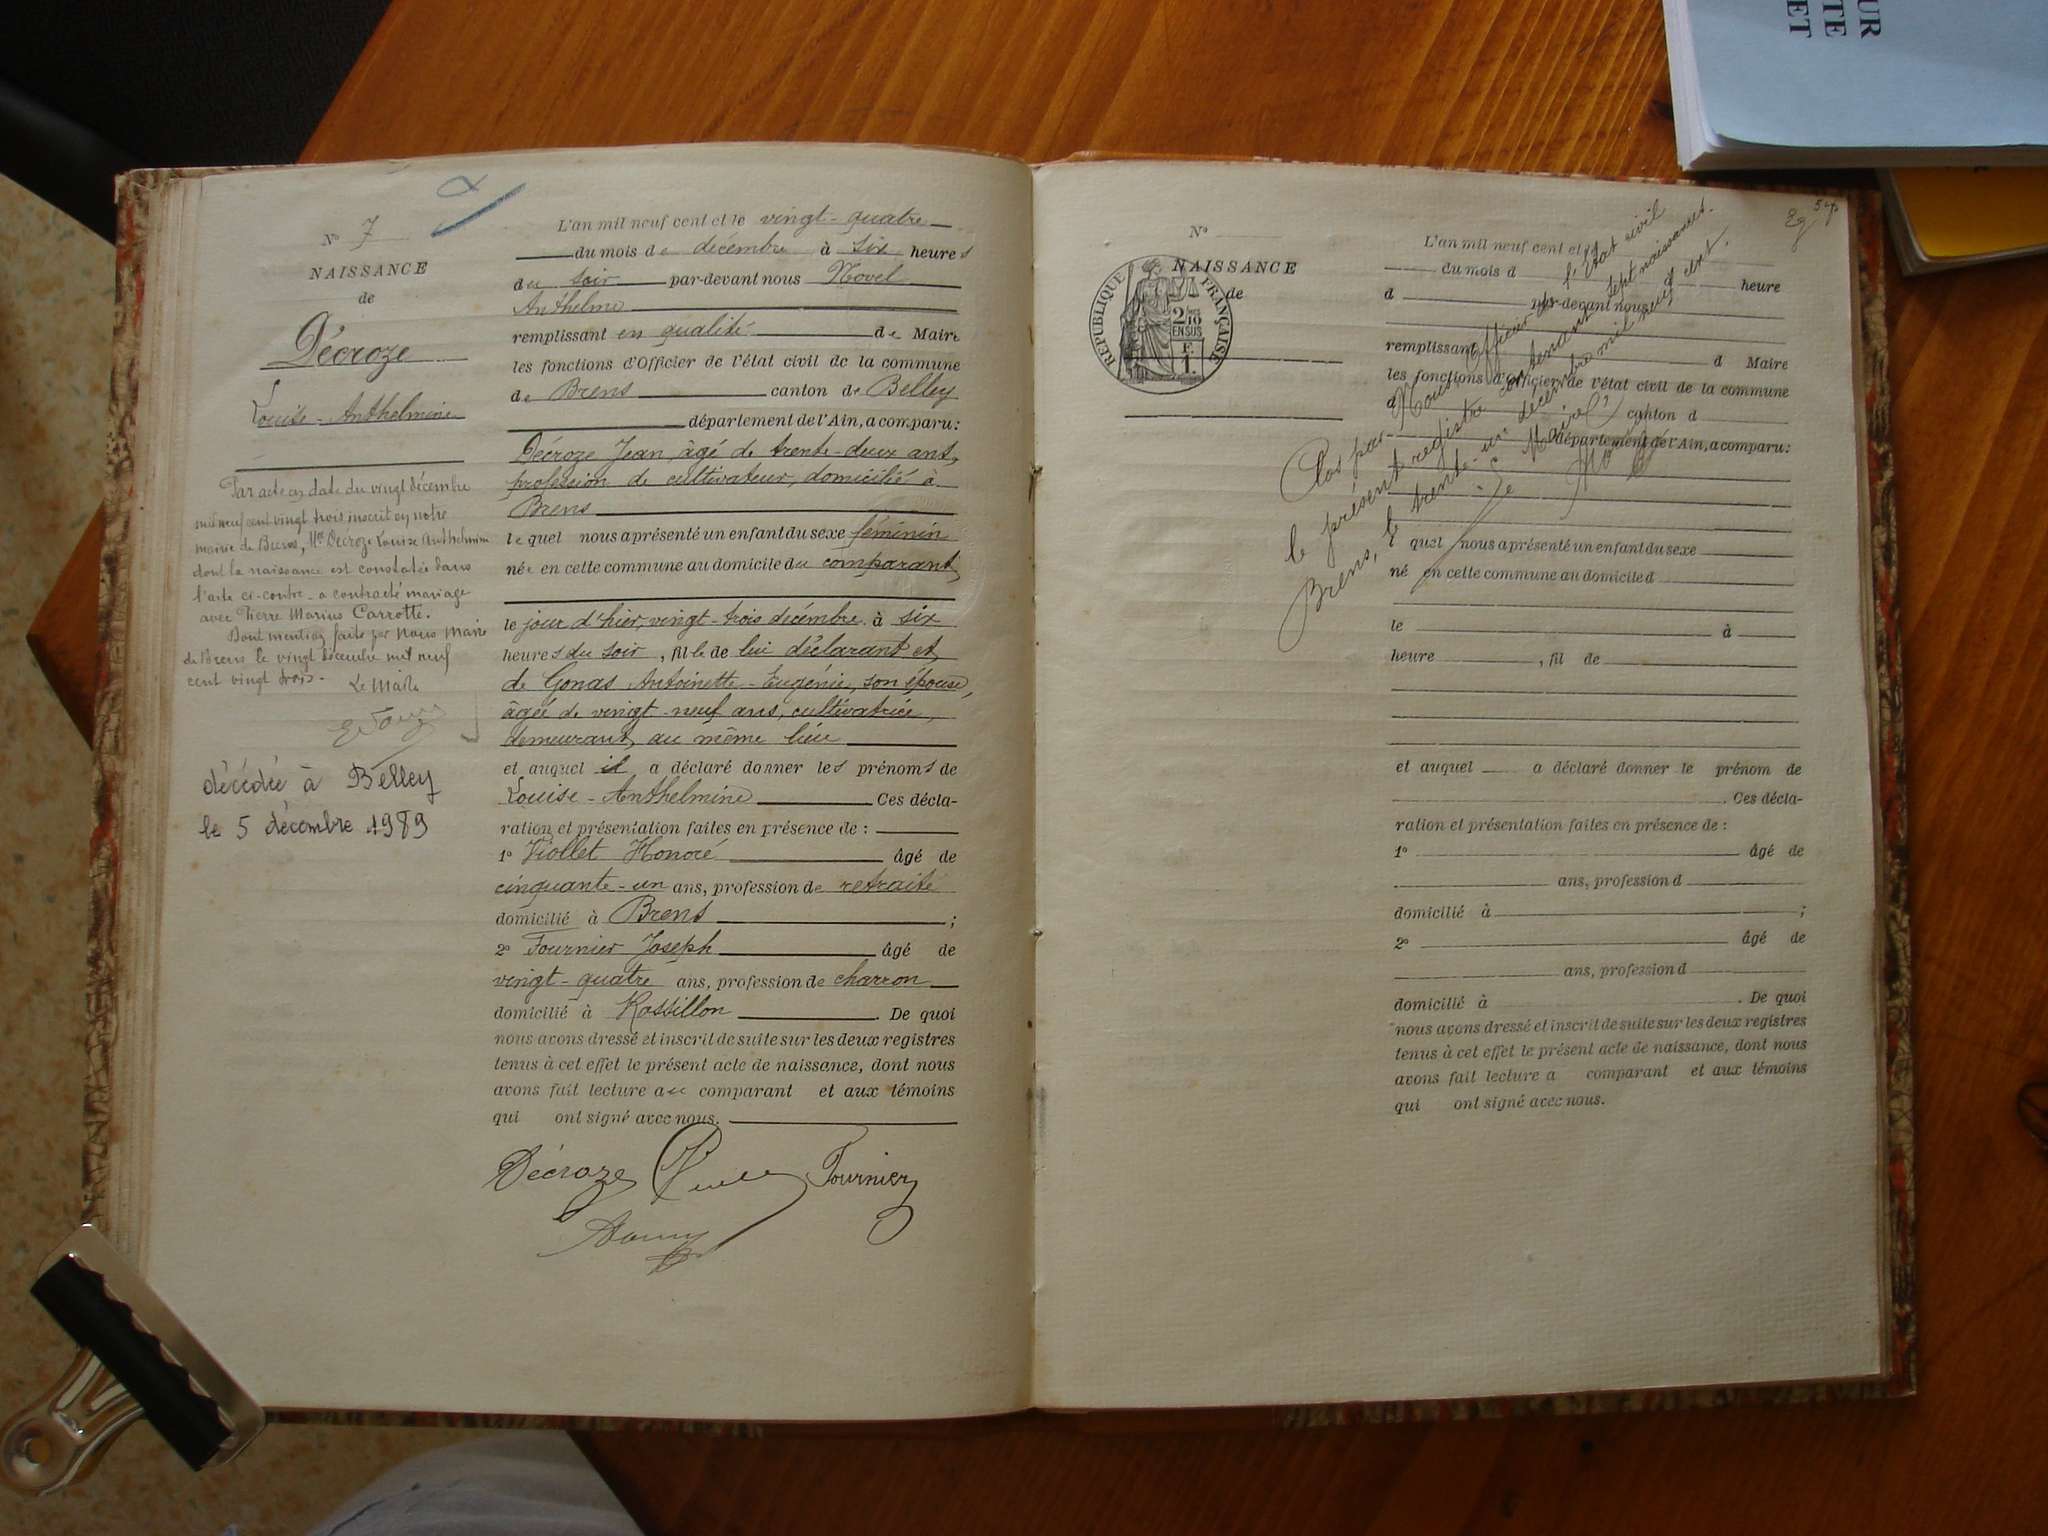 Nº 7
NAISSANCE
de
Décroze
Louise-Anthelmine
Par acte en date du vingt décembre
mil neuf cent vingt trois inscrit en notre
mairie de Brens, Mlle Décroze Louise Anthelmine
dont la naissance est constatée dans
l'acte ci-contre a contracté mariage
avec Pierre Marius Carrotte.
Dont mention faite par Nous Maire
de Brens le vingt décembre mil neuf
cent vingt trois.
Le Maire
décédée à Belley
le 5 décembre 1989
L'an mil neuf cent et le vingt-quatre
du mois de décembre à six heures
du soir par-devant nous Novel
Anthelme
remplissant en qualité de Maire
les fonctions d'Officier de l'état civil de la commune
de Brens canton de Belley
département de l'Ain, a comparu:
Décroze Jean, âgé de trente-deux ans,
profession de cultivateur, domicilié à
Brens
lequel nous a présenté un enfant du sexe féminin
née en cette commune au domicile du comparant,
le jour d'hier, vingt-trois décembre à six
heures du soir, fille de lui déclarant et
de Gonas Antoinette-Eugénie, son épouse,
âgée de vingt-neuf ans, cultivatrice,
demeurant au même lieu
et auquel il a déclaré donner les prénoms de
Louise-Anthelmine Ces décla-
ration et présentation faites en présence de :
1º Viollet Honoré âgé de
cinquante-un ans, profession de retraité
domicilié à Brens ;
2º Fournier Joseph âgé de
vingt-quatre ans, profession de charron
domicilié à Rossillon . De quoi
nous avons dressé et inscrit de suite sur les deux registres
tenus à cet effet le présent acte de naissance, dont nous
avons fait lecture au comparant et aux témoins
qui ont signé avec nous.
Décroze Fournier
Nº
NAISSANCE
de
RÉPUBLIQUE FRANÇAISE
2/10
EN SUS
F.
1.
L'an mil neuf cent et le
du mois d heure
d par-devant nous
remplissant d Maire
les fonctions d'Officier de l'état civil de la commune
d canton d
département de l'Ain, a comparu:
l quel nous a présenté un enfant du sexe
né en cette commune au domicile d
le à
heure , fil de
et auquel a déclaré donner le prénom de
. Ces décla-
ration et présentation faites en présence de :
1º âgé de
ans, profession d
domicilié à ;
2º âgé de
ans, profession d
domicilié à . De quoi
nous avons dressé et inscrit de suite sur les deux registres
tenus à cet effet le présent acte de naissance, dont nous
avons fait lecture a comparant et aux témoins
qui ont signé avec nous.
Clos par Nous, Officier de l'état civil
le présent registre contenant sept naissances.
Brens, le trente-un décembre mil neuf cent.
Le Maire
UR
TE
ET